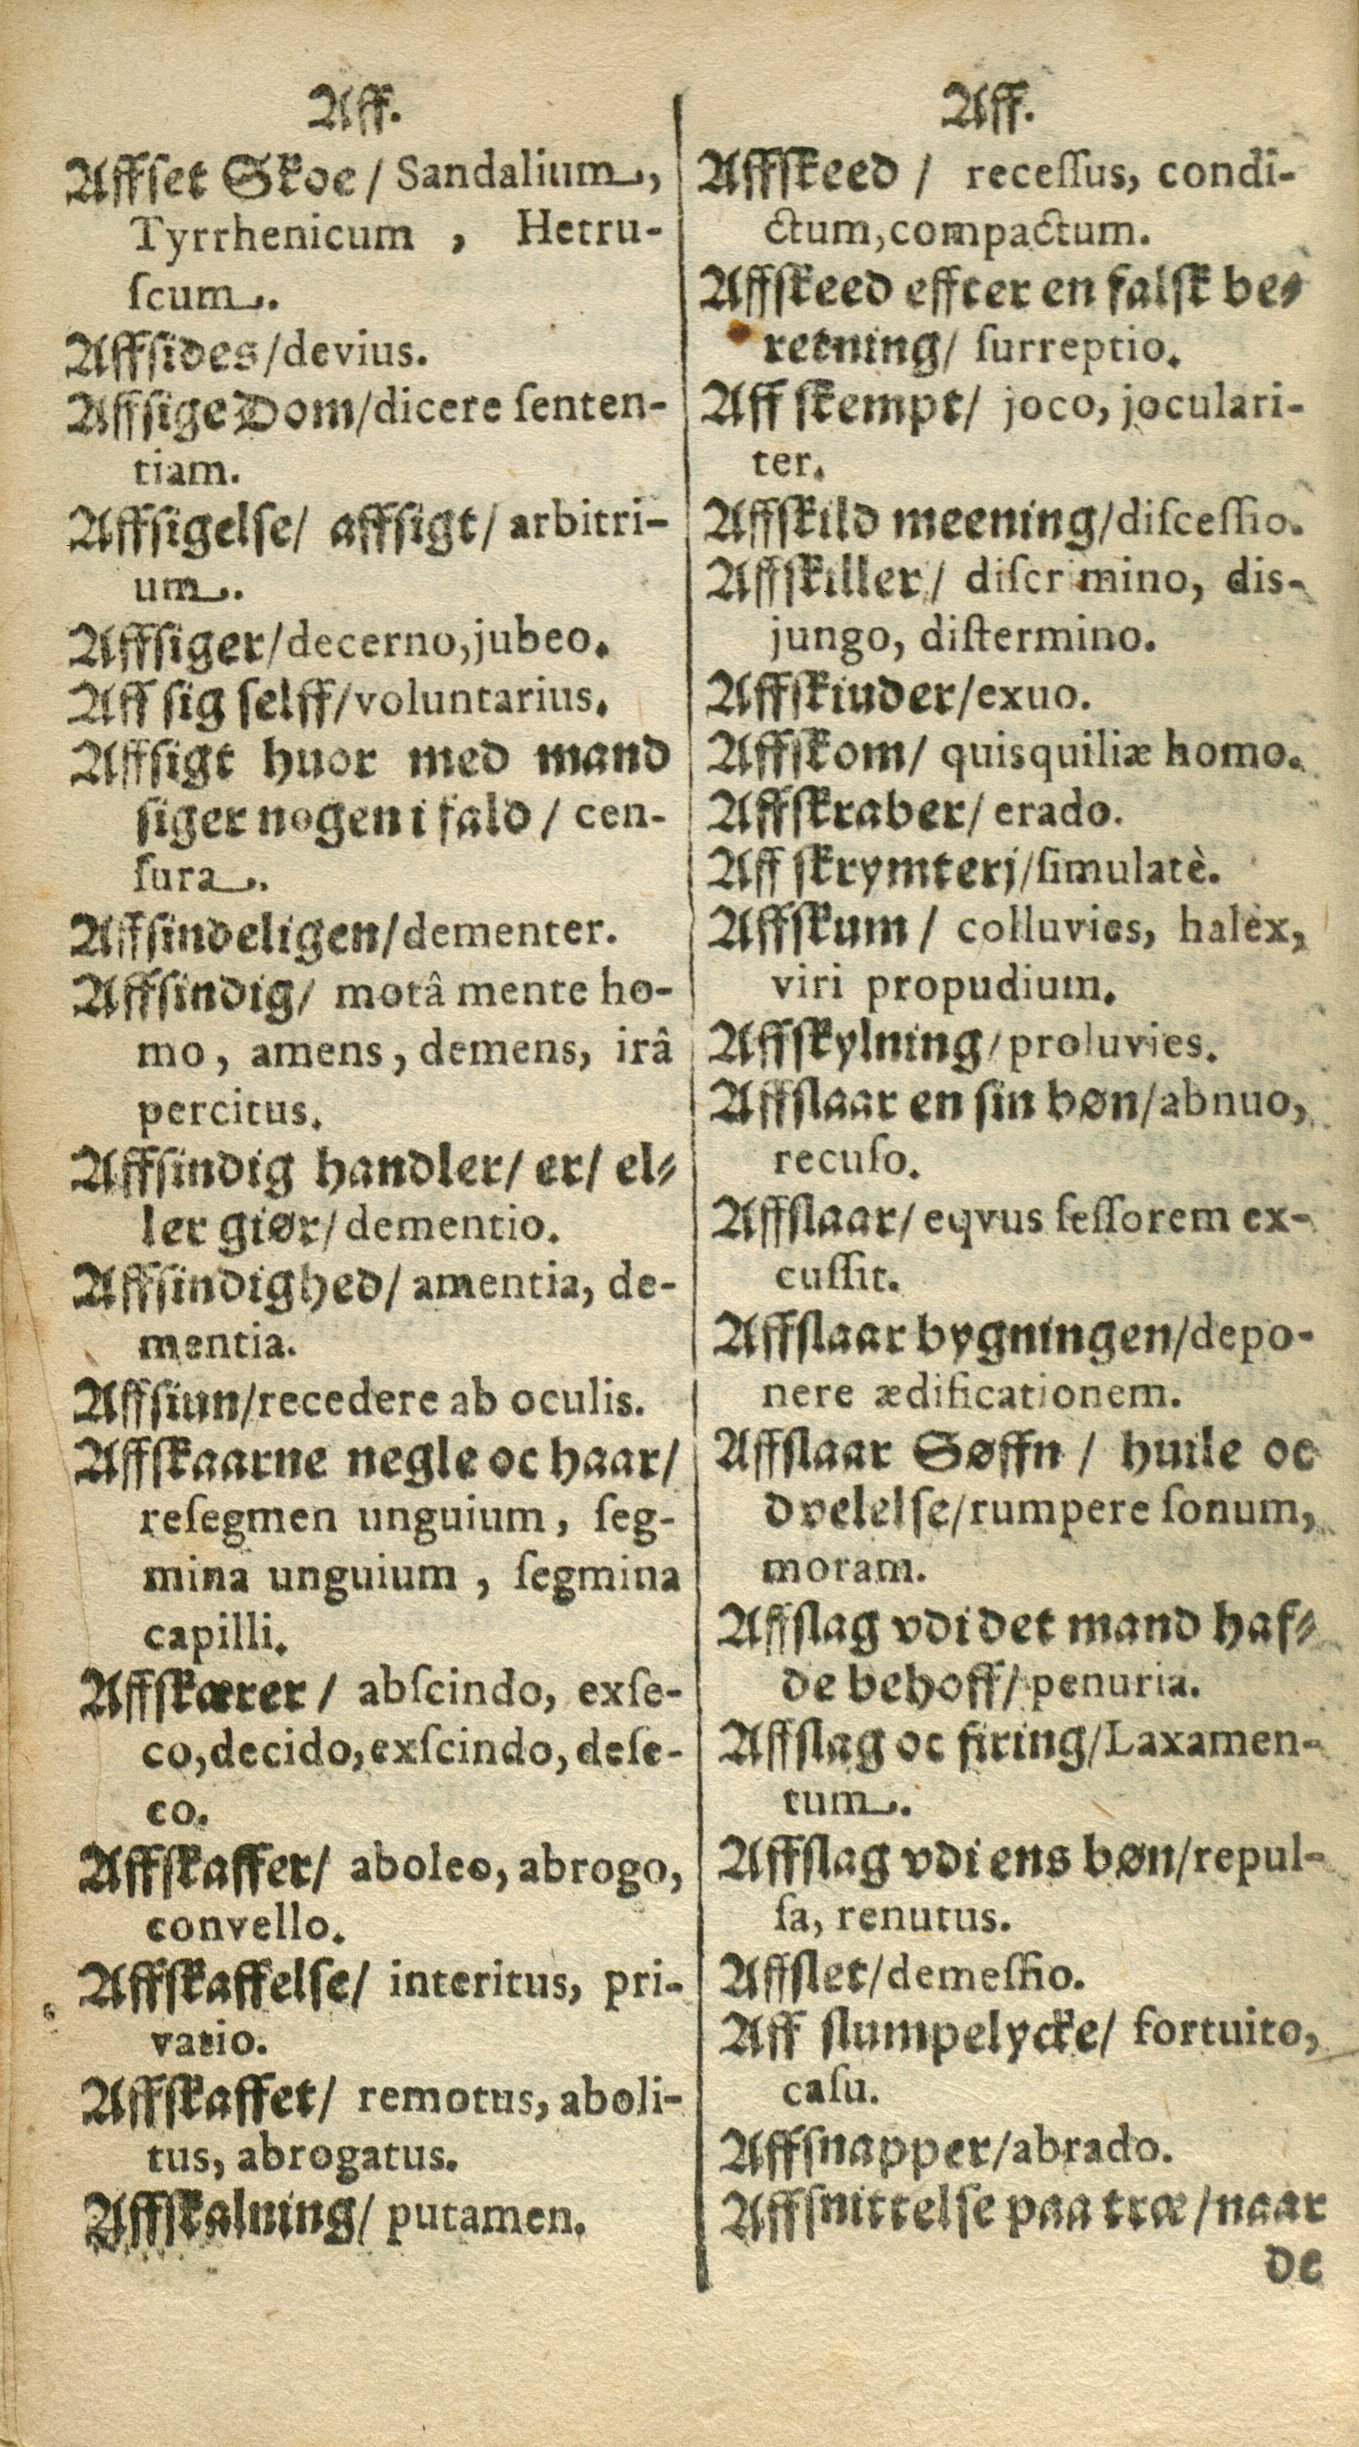 Aff.
Affſet Skoe / Sandalium,
Tyrrhenicum , Hetru-
ſcum.
Affſides/devius.
Affſige Dom/dicere ſenten-
tiam.
Affſigelſe/ affſigt/ arbitri-
um.
Affſiger/decerno,jubeo.
Aff ſig ſelff/voluntarius.
Affſigt huor med mand
ſiger nogen i fald / cen-
ſura.
Affſindeligen/dementer.
Affſindig/ motâ mente ho-
mo, amens, demens, irâ
percitus.
Affſindig handler/ er/ el-
ler giør/dementio.
Affſindighed/ amentia, de-
mentia.
Affſiun/recedere ab oculis.
Affſkaarne negle oc haar/
reſegmen unguium, ſeg-
mina unguium , ſegmina
capilli.
Affſkærer / abſcindo, exſe-
co,decido,exſcindo,deſe-
co.
Affſkaffer/ aboleo, abrogo,
convello.
Affſkaffelſe/ interitus, pri-
vatio.
Affſkaffet/ remotus, aboli-
tus, abrogatus.
Affſkalning/ putamen.
Aff.
Affſkeed / receſſus, condi-
ctum,compactum.
Affſkeed effter en falſk be-
retning/ ſurreptio.
Aff ſkempt/ joco, joculari-
ter.
Affſkild meening/diſceſſio.
Affſkiller/ diſcrimino, dis-
jungo, diſtermino.
Affſkiuder/exuo.
Affſkom/ quisquiliæ homo.
Affſkraber/ erado.
Aff ſkrymterj/ſimulatè.
Affſkum / colluvies, halex,
viri propudium.
Affſkylning/proluvies.
Affſlaar en ſin bøn/abnuo,
recuſo.
Affſlaar/ eqvus ſeſſorem ex-
cuſſit.
Affſlaar bygningen/depo-
nere ædificationem.
Affſlaar Søffn / huile oc
dvelelſe/rumpere ſonum,
moram.
Affſlag vdi det mand haf-
de behoff/ penuria.
Affſlag oc firing/Laxamen-
tum.
Affſlag vdi ens bøn/repul-
ſa, renutus.
Affſlet/demeſſio.
Aff ſlumpelycke/ fortuito,
caſu.
Affſnapper/abrado.
Affſnittelſe paa træ /naar
de